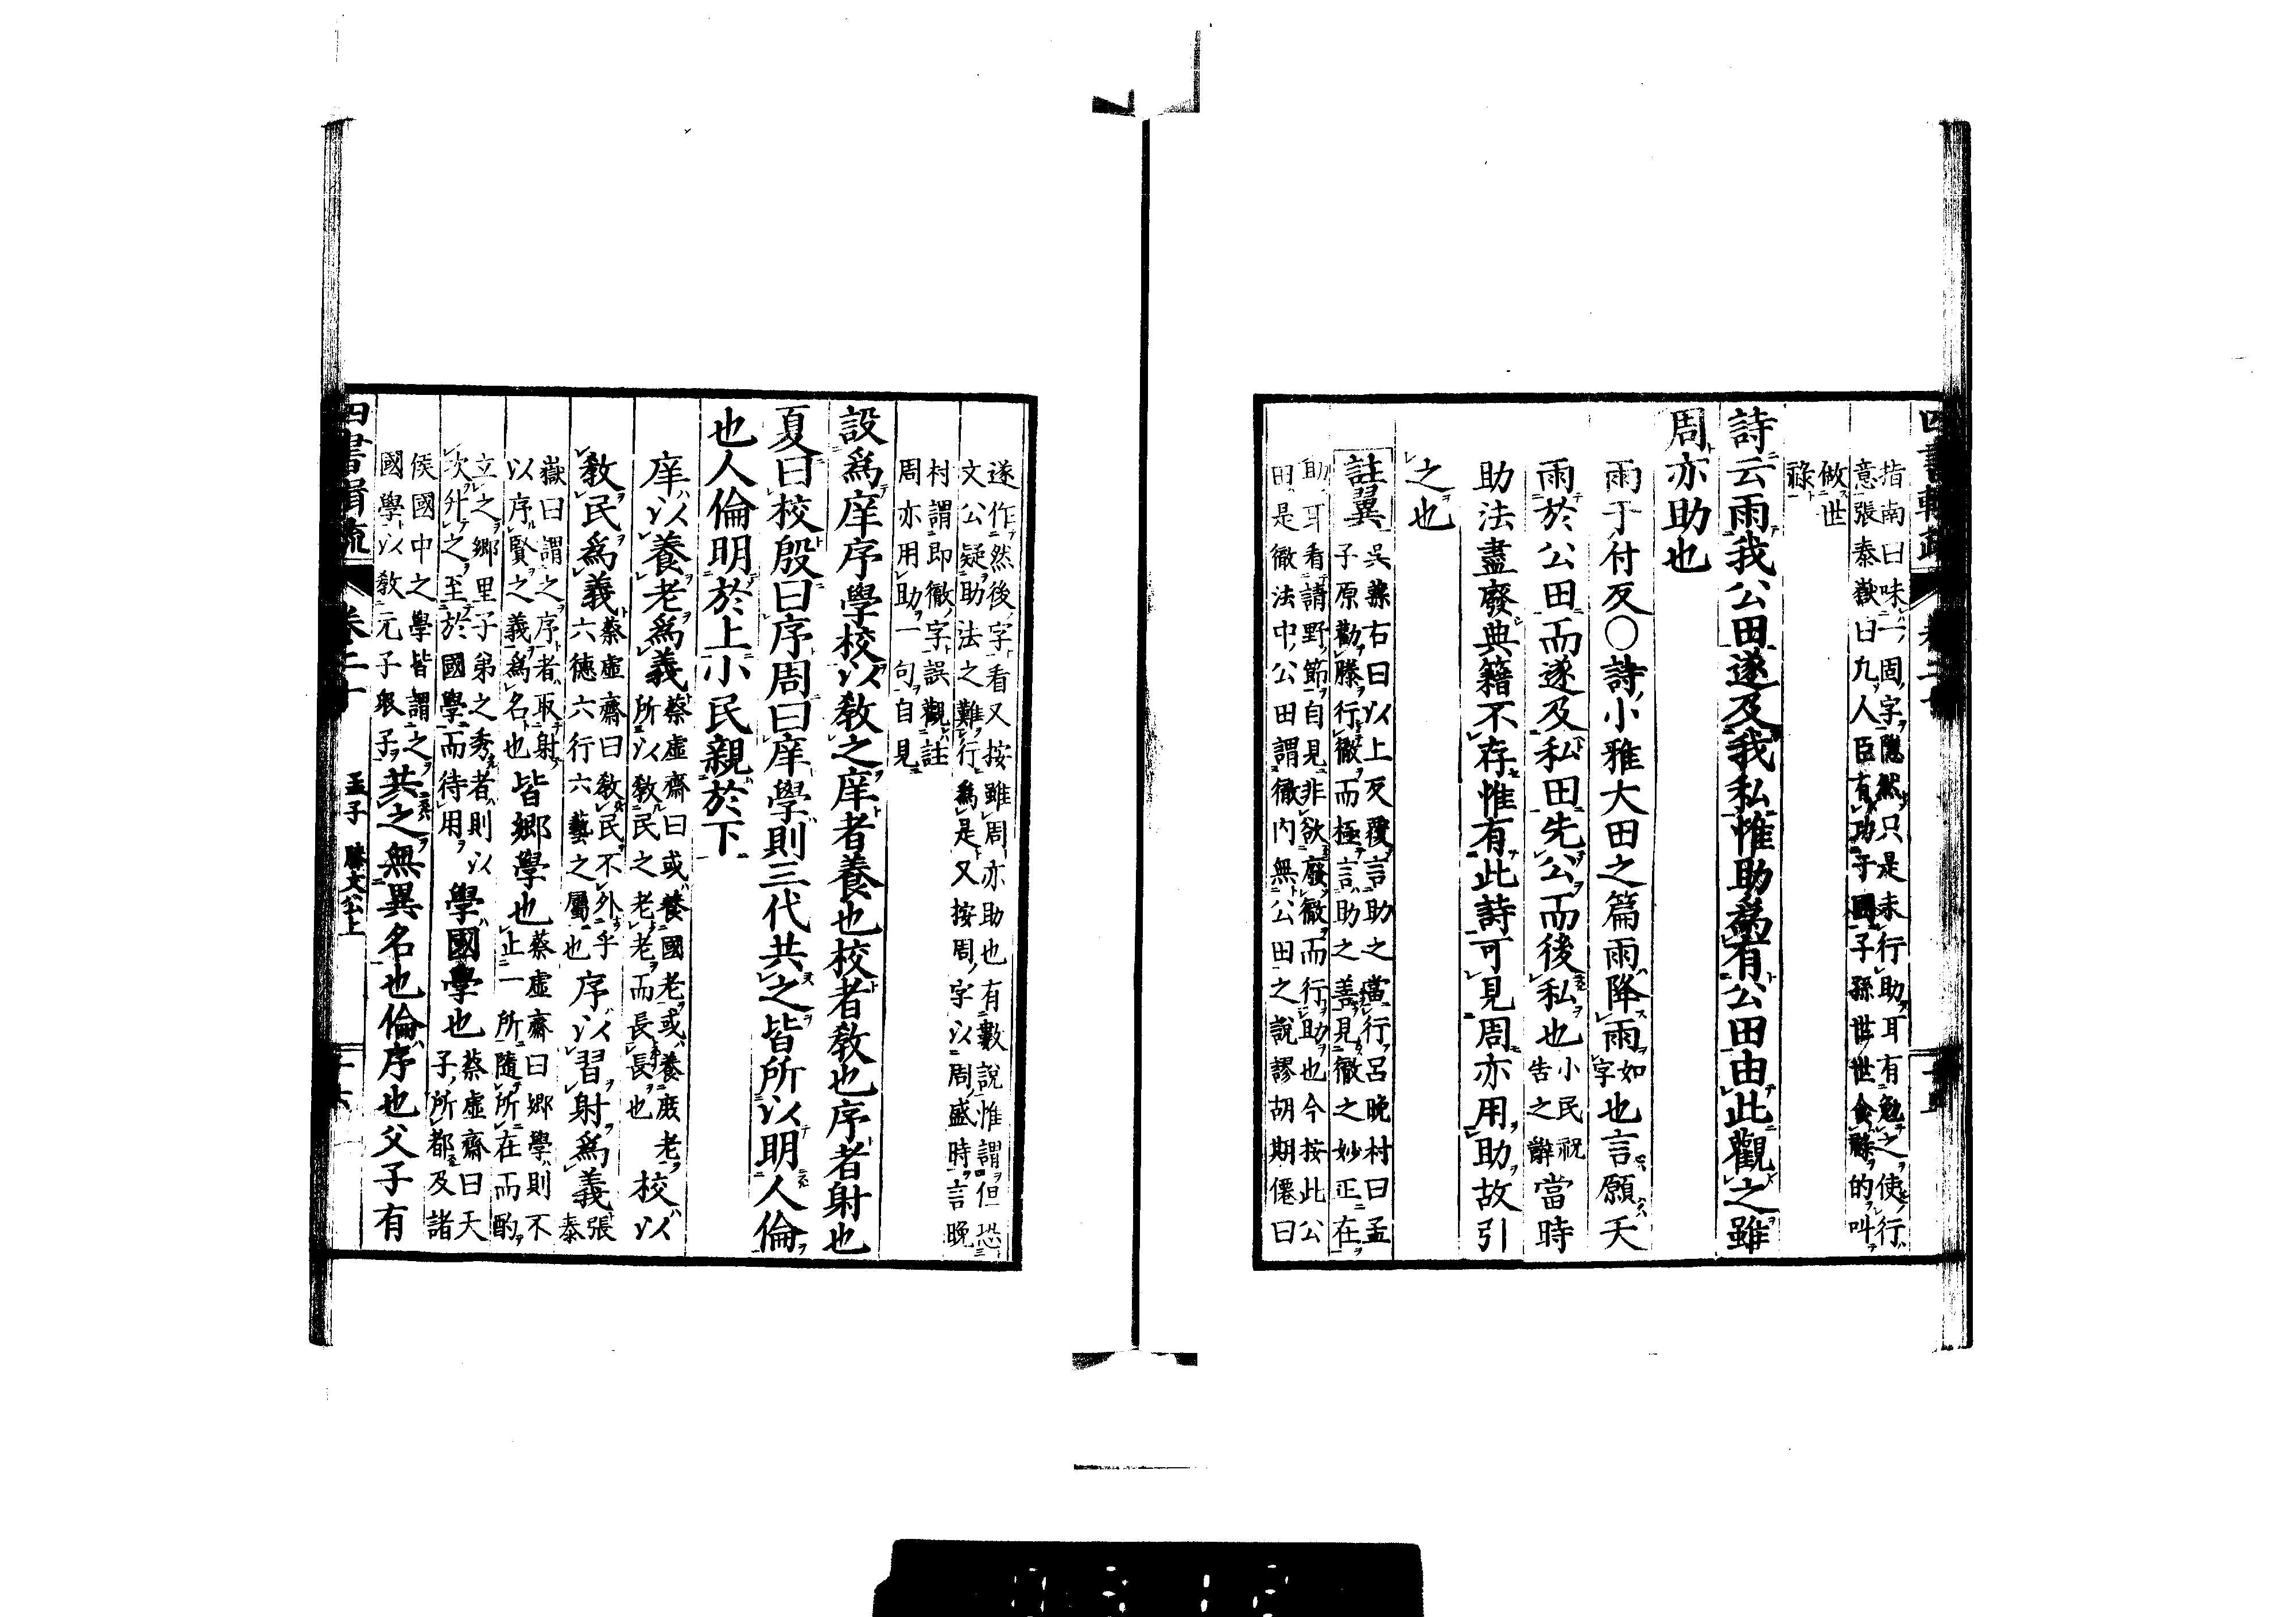 四書輯疏
指南曰味一固字隱然只是未行助耳有勉之使行
意張泰嶽曰九人臣有功于國子孫世世食祿的叫
做世
祿
詩云雨我公田遂及我私惟助爲有公田由此觀之雖
周亦助也
雨于付反○詩小雅大田之篇雨降雨如
字也言願天
雨於公田而遂及私田先公而後私也小民祝
告之辭當時
助法盡廢典籍不存惟有此詩可見周亦用助故引
之也
註翼
吳蓀右曰以上反覆言助之當行呂晚村曰孟
子原勸滕行徹而極言助之善見徹之妙正在
助耳看請野節自見非欲廢徹而行助也今按此公
田是徹法中公田謂徹內無公田之說謬胡期僊曰
遂作然後字看又按雖周亦助也有數說惟謂但恐
文公疑助法之難行爲是又按周字以周盛時言晚
村謂即徹字誤觀註
周亦用助一句自見
設爲庠序學校以敎之庠者養也校者敎也序者射也
夏曰校殷曰序周曰庠學則三代共之皆所以明人倫
也人倫明於上小民親於下
庠以養老爲義
蔡虛齋曰或養國老或養庶老
所以敎民之老老而長長也
校以
敎民爲義
蔡虛齋曰敎民不外乎
六德六行六藝之屬也
序以習射爲義
張
泰
嶽曰謂之序者取射
以序賢之義爲名也
皆鄉學也
蔡虛齋曰鄉學則不
止一所隨所在而酌
立之鄉里子弟之秀者則以
次升之至於國學而待用
學國學也
蔡虛齋曰天
子所都及諸
侯國中之學皆謂之
國學以敎元子衆子
共之無異名也倫序也父子有
四書輯疏
卷二十
孟子 滕文公上